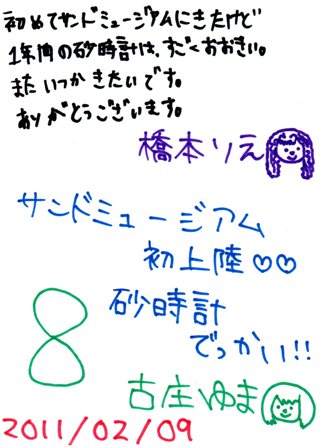 初めてサンドミュージアムにきたけど
1年間の砂時計は、すごくおおきい。
またいつかきたいです。
ありがとうございます。
橋本りえ
サンドミュージアム
初上陸♡♡
砂時計
でっかい!!
古庄ゆま
2011/02/09